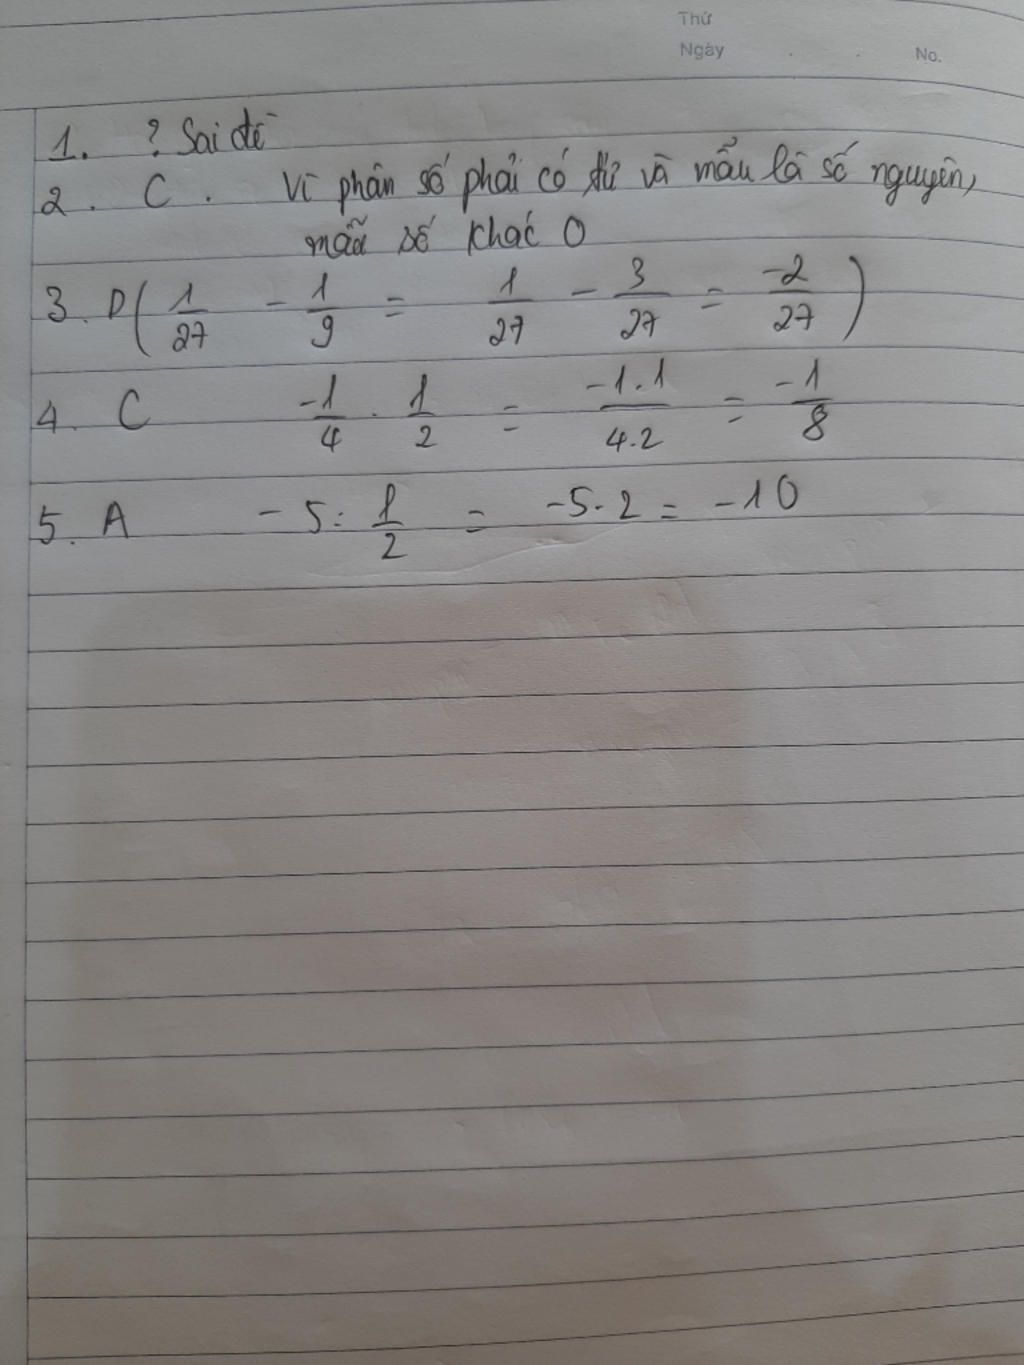 Thứ
Ngày . . No.
1. ? Sai đề
2. C. Vì phân số phải có tử và mẫu là số nguyên,
mẫu số khác 0
3. D ( 1/27 - 1/9 = 1/27 - 3/27 = -2/27 )
4. C -1/4 . 1/2 = -1.1/4.2 = -1/8
5. A - 5 : 1/2 = -5. 2 = -10